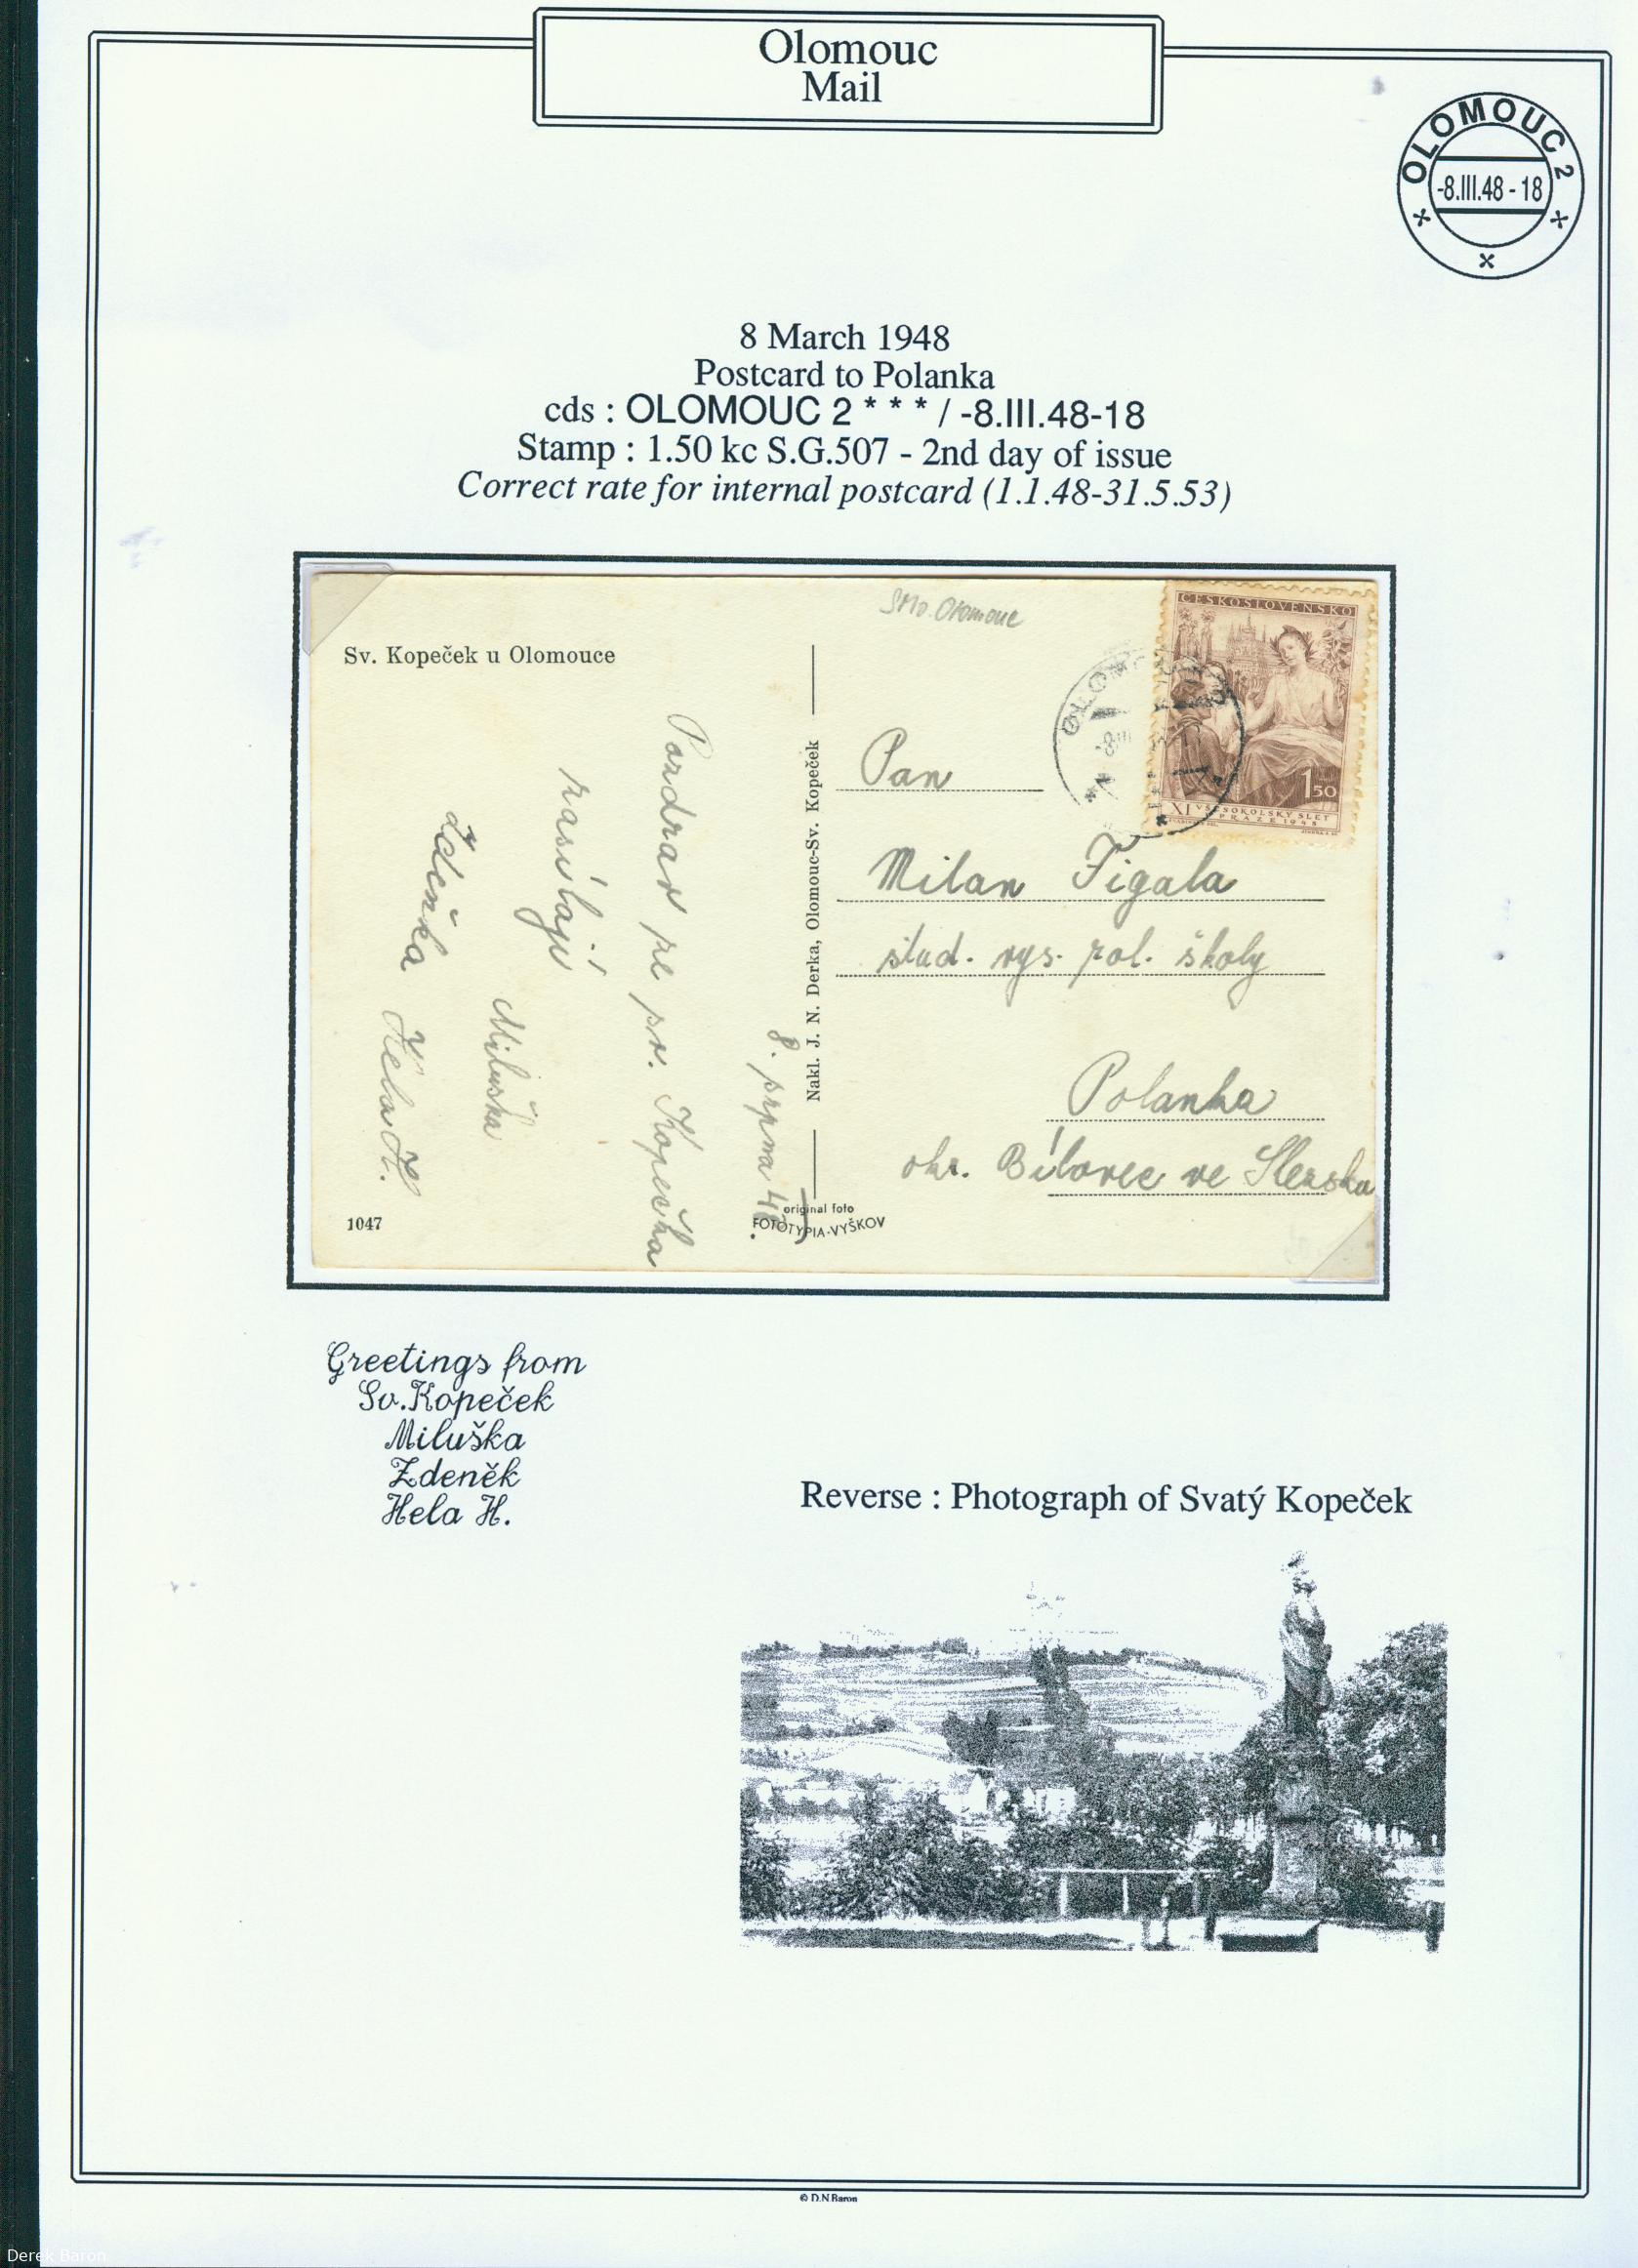 Olomouc
Mail
OLOMOUC 2
-8.III.48 - 18
8 March 1948
Postcard to Polanka
cds : OLOMOUC 2 * * * / -8.III.48-18
Stamp : 1.50 kc S.G.507 - 2nd day of issue
Correct rate for internal postcard (1.1.48-31.5.53)
Olomouc
ČESKOSLOVENSKO
1 50
XI VŠESOKOLSKÝ SLET
V PRAZE 1948
Sv. Kopeček u Olomouce
Pozdrav ze sv. Kopečka
zasílají
Miluška
Zdenka Hela H.
8. srpna 48
Nakl. J. N. Derka, Olomouc-Sv. Kopeček
Pan
Milan Figala
stud. vys. pol. školy
Polanka
okr. Bílovec ve Slezsku
1047
original foto
FOTOTYPIA-VYŠKOV
Greetings from
Sv.Kopeček
Miluška
Zdeněk
Hela H.
Reverse : Photograph of Svatý Kopeček
© D.N Baron
Derek Baron